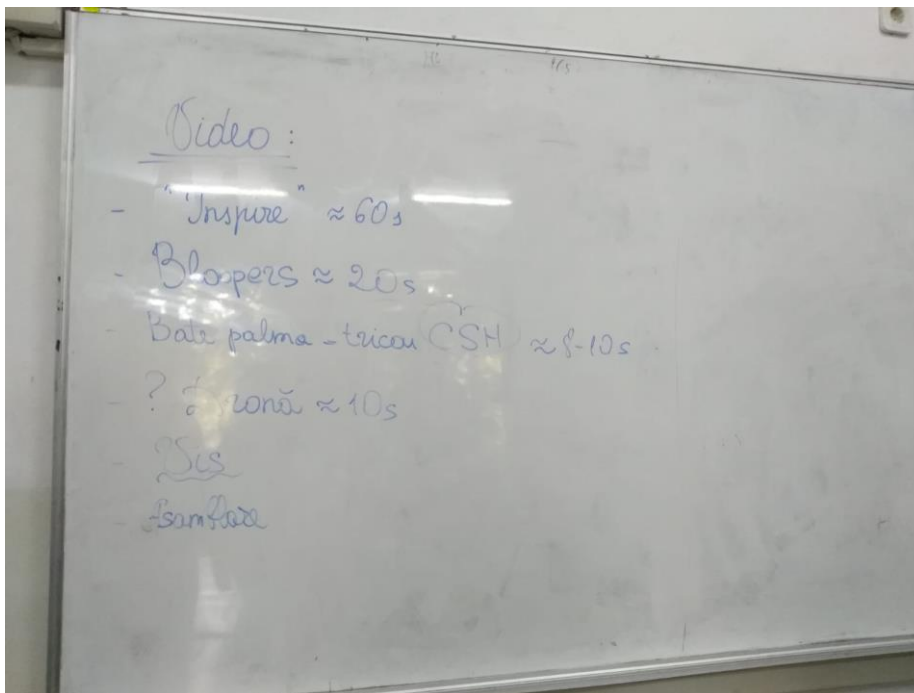 Video :
- "Inspire" ≈ 60s
- Bloopers ≈ 20s
- Bate palma - tricou CSH ≈ 8-10s
- ? ronă ≈ 10s
- Vis
- Asamblare